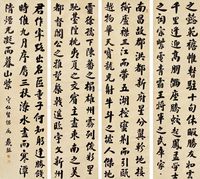 之懿範襜帷暫駐十旬休暇勝友如雲
千里逢迎高朋滿座騰蛟起鳳孟學士
之詞宗紫電清霜王將軍之武庫家
南昌故郡洪都新府星分翼軫地接
衡廬襟三江而帶五湖控蠻荊而引甌
越物華天寶龍光射牛斗之墟人傑地
靈徐孺下陳蕃之榻雄州霧列俊彩星
馳臺隍枕夷夏之交賓主盡東南之美
都督閻公之雅望棨戟遙臨宇文新州
君作宰路出名區童子何知躬逢勝餞
時維九月序屬三秋潦水盡而寒潭
清煙光凝而暮山紫